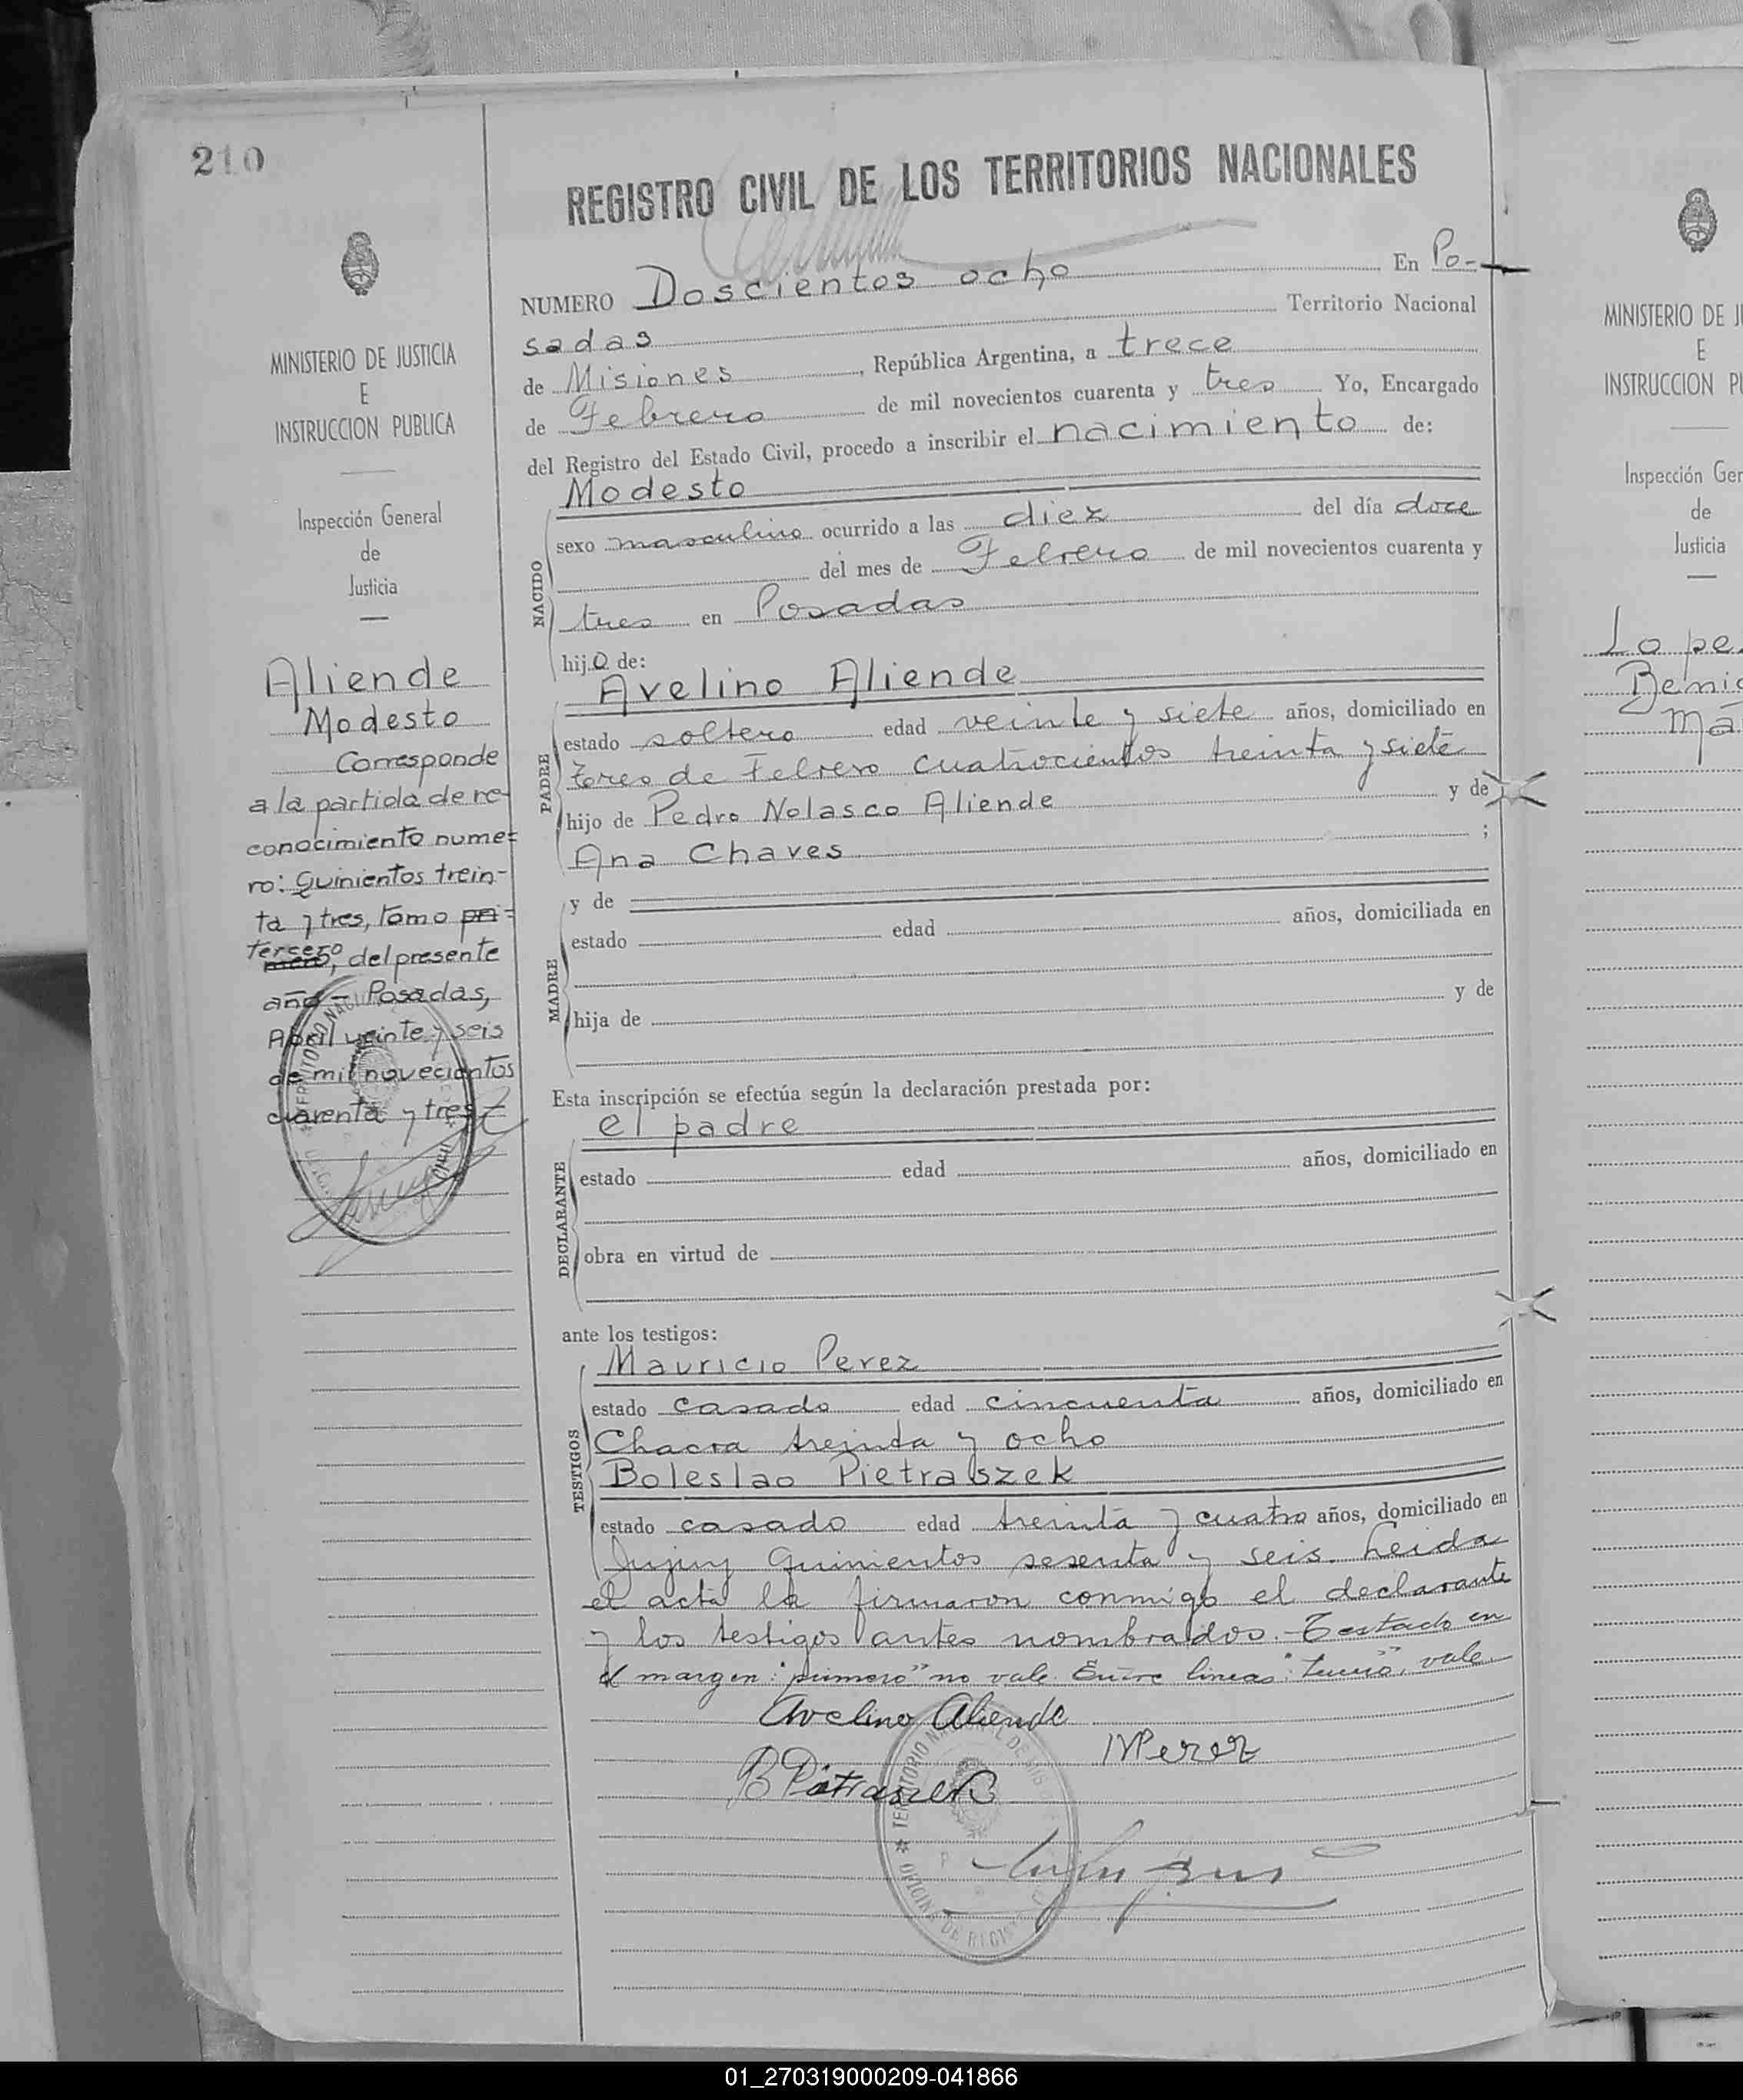 210
MINISTERIO DE JUSTICIA
E
INSTRUCCION PUBLICA
Inspección General
de
Justicia
Aliende
Modesto
Corresponde
a la partida de re-
conocimiento nume=
ro: Quinientos trein-
ta y tres, tomo pri=
tercero
mero, del presente
año - Posadas,
Abril veinte y seis
de mil novecientos
cuarenta y tres
REGISTRO CIVIL DE LOS TERRITORIOS NACIONALES
NUMERO Doscientos ocho En Po-
sadas Territorio Nacional
de Misiones, República Argentina, a trece
de Febrero de mil novecientos cuarenta y tres Yo, Encargado
del Registro del Estado Civil, procedo a inscribir el nacimiento de:
NACIDO
Modesto
sexo masculino ocurrido a las diez del día doce
del mes de Febrero de mil novecientos cuarenta y
tres en Posadas
hijo de:
PADRE
Avelino Aliende
estado soltero edad veinte y siete años, domiciliado en
tres de Febrero cuatrocientos treinta y siete
hijo de Pedro Nolasco Aliende y de
Ana Chaves ;
MADRE
y de
estado edad años, domiciliada en
hija de y de
Esta inscripción se efectúa según la declaración prestada por:
DECLARANTE
el padre
estado edad años, domiciliado en
obra en virtud de
ante los testigos:
TESTIGOS
Mauricio Perez
estado casado edad cincuenta años, domiciliado en
Chacra treinta y ocho
Boleslao Pietraszek
estado casado edad treinta y cuatro años, domiciliado en
Jujuy Quinientos sesenta y seis. Leida
el acta la firmaron conmigo el declarante
y los testigos antes nombrados. - Testado en
el margen: "primero" no vale. Entre lineas: "tercero", vale.
Avelino Aliende
MPerez
B Pietraszek
TERRITORIO NACIONAL DE MIS
OFICINA DE REGIS
MINISTERIO DE JU
E
INSTRUCCION PU
Inspección Gen
de
Justicia
Lope
Benig
Ma
01_270319000209-041866